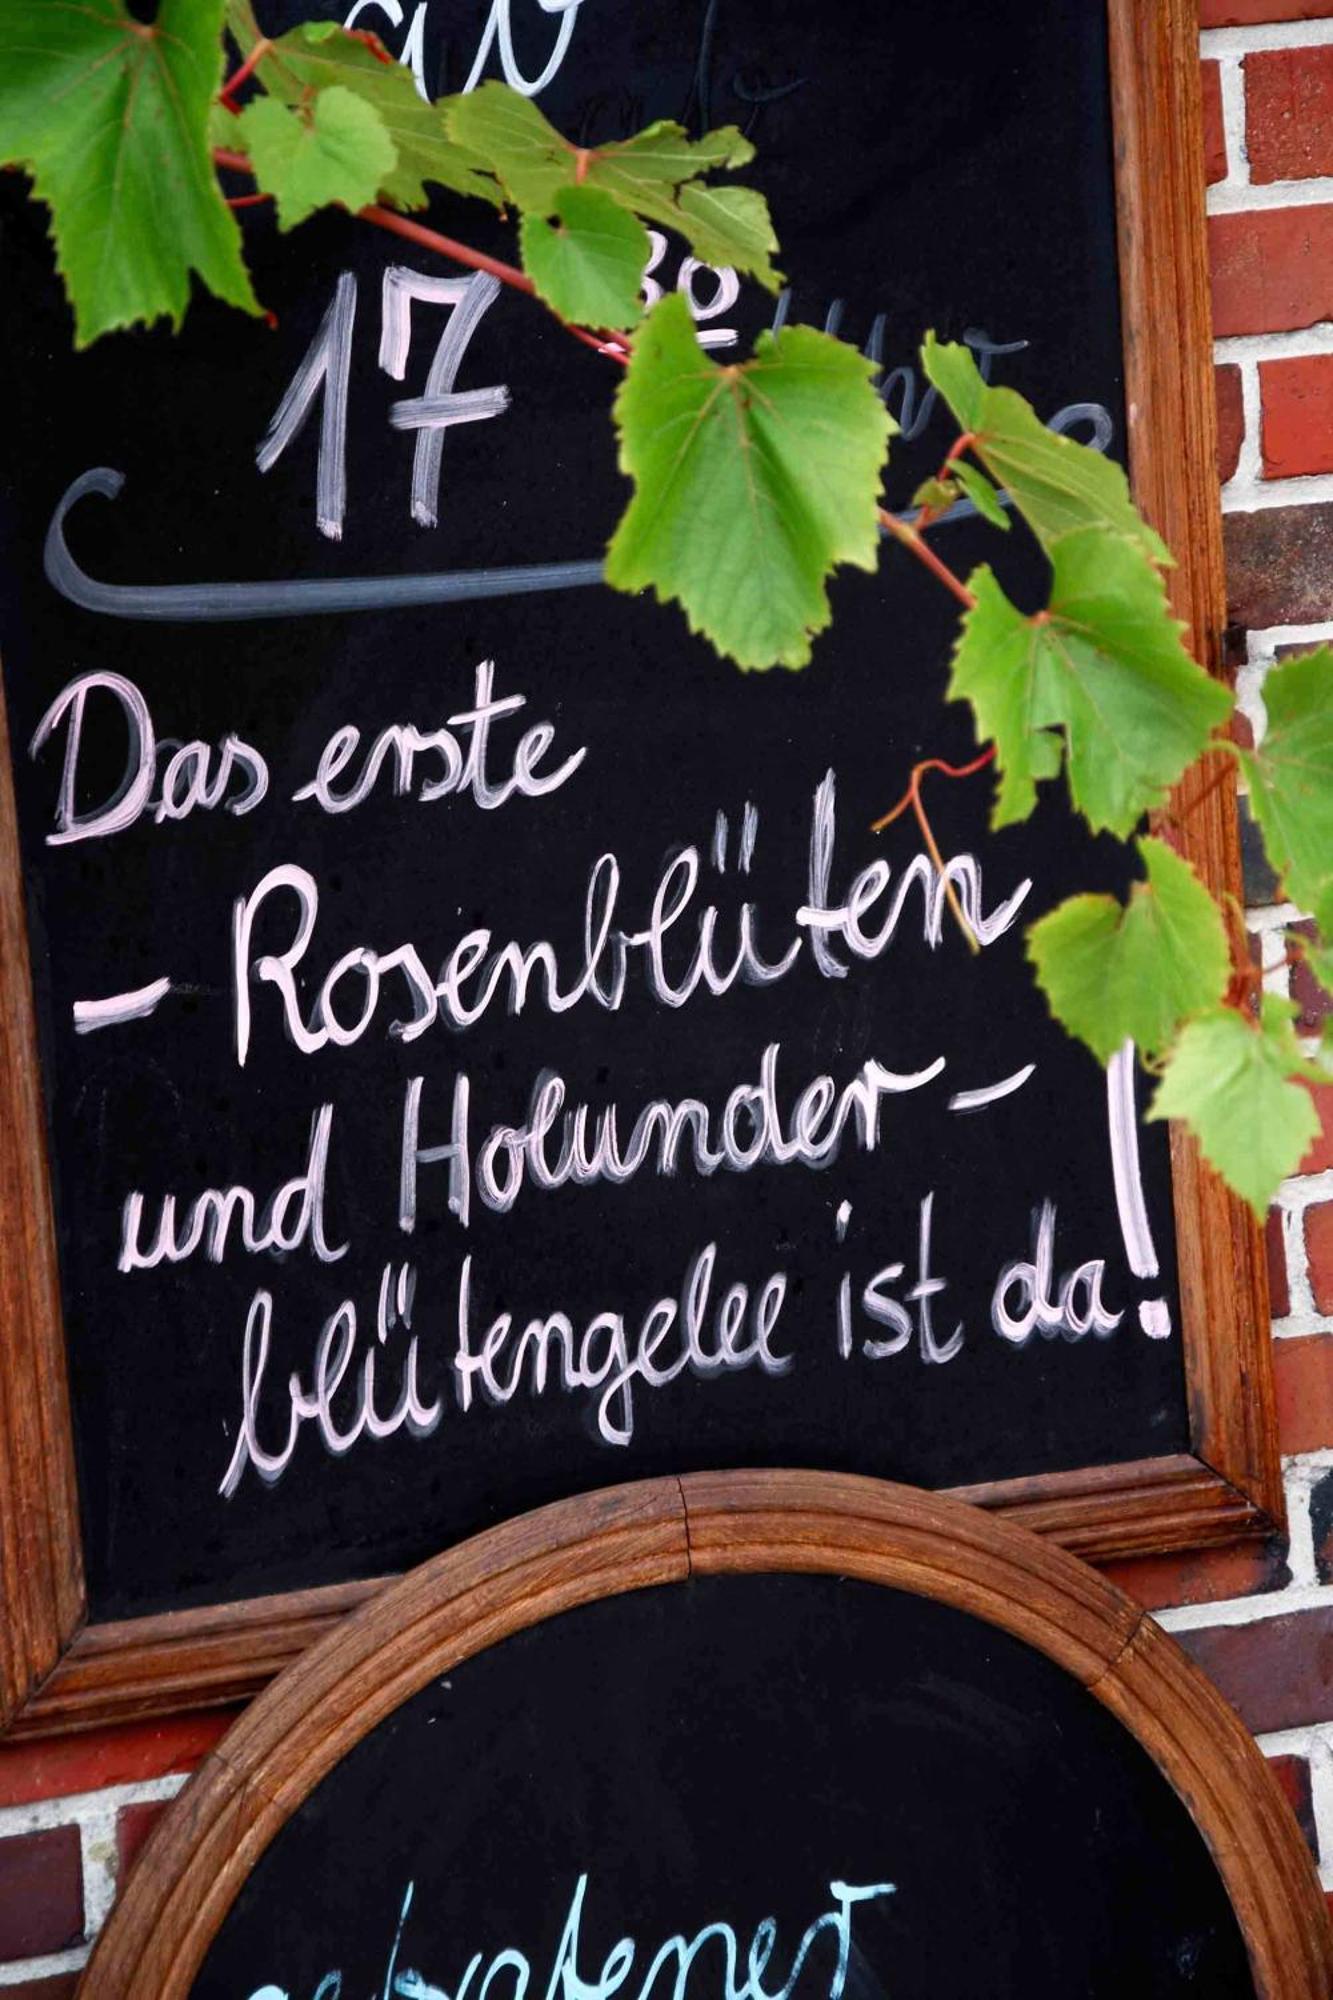 ab
17 30 Uhr
Das erste
- Rosenblüten
und Holunder-
blütengelee ist da!